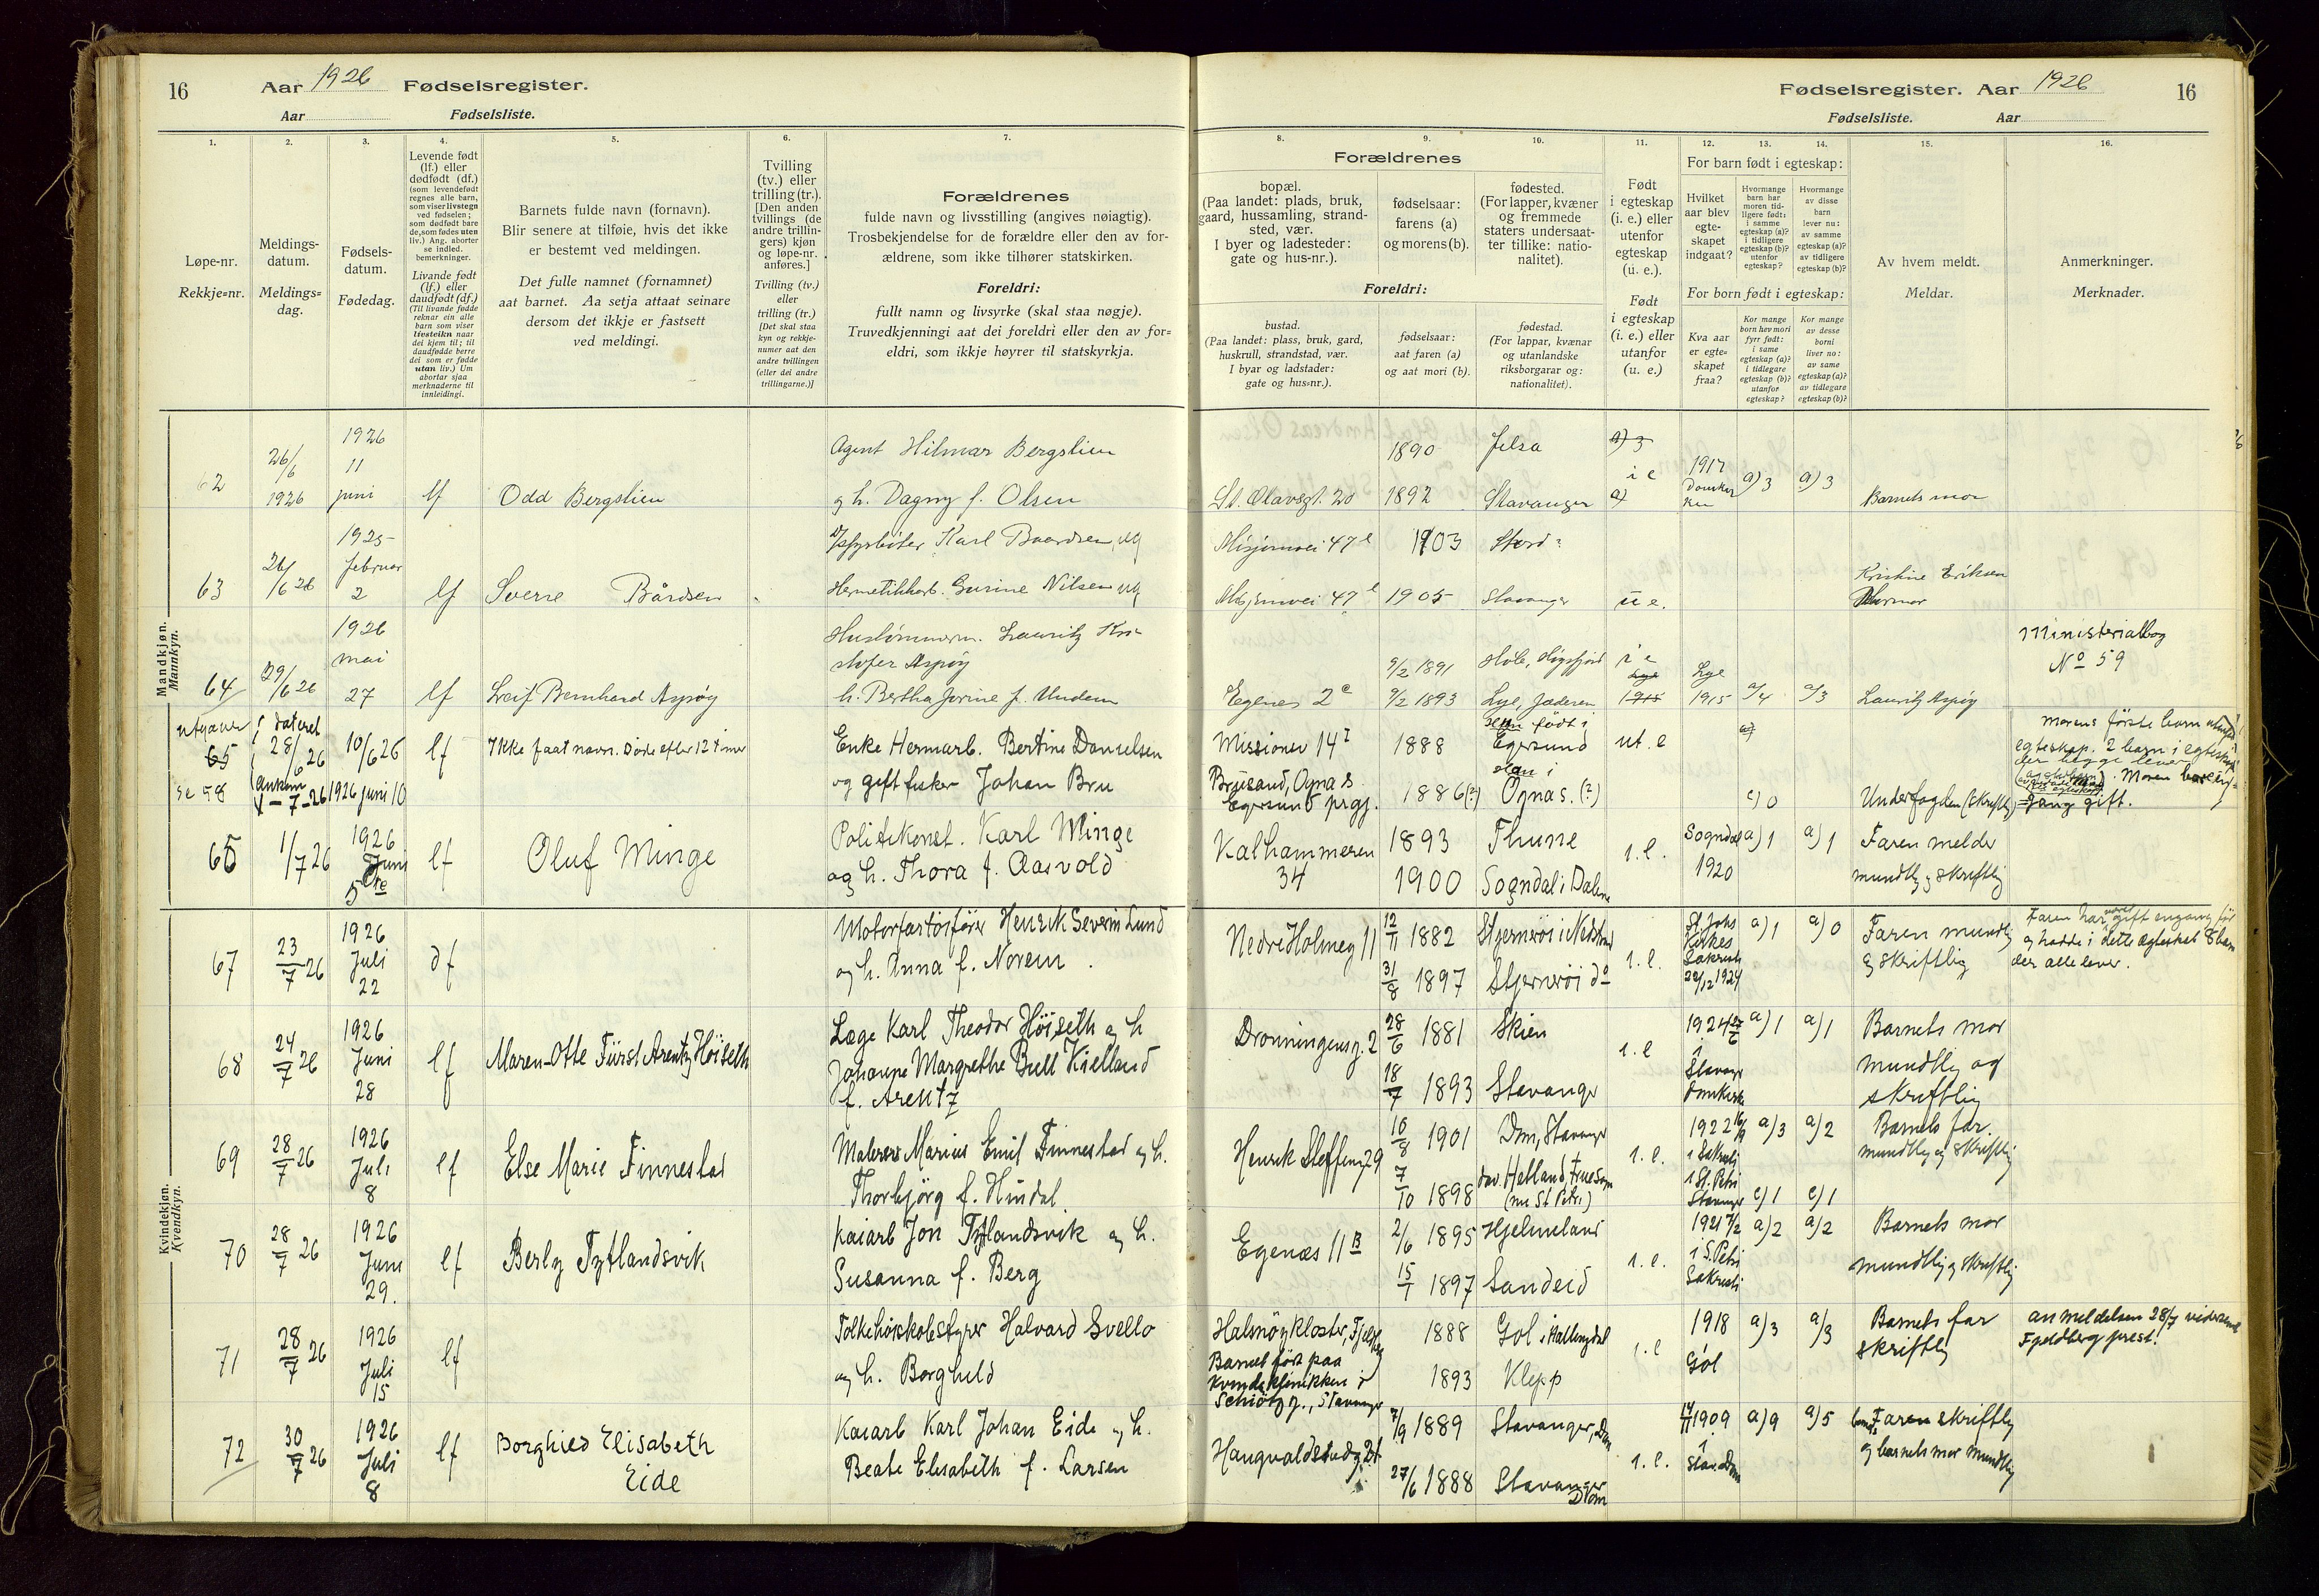 16
Aar 1926 Fødselsregister.
Aar Fødselsliste.
1.
2.
3.
4.
5.
6.
7.
Løpe-nr.
Rekkje=nr.
Meldings-
datum.
Meldings=
dag.
Fødsels-
datum.
Fødedag.
Levende født
(lf.) eller
dødfødt (df.)
(som levendefødt
regnes alle barn,
som viser livstegn
ved fødselen;
som dødfødt bare
de, som fødes uten
liv.) Ang. aborter
se indled.
bemerkninger.
Livande født
(lf.) eller
daudfødt (df.)
(Til livande fødde
reknar ein alle
barn som viser
livsteikn naar
dei kjem til; til
daudfødde berre
dei som er fødde
utan liv.) Um
abortar sjaa
merknaderne til
innleidingi.
Barnets fulde navn (fornavn).
Blir senere at tilføie, hvis det ikke
er bestemt ved meldingen.
Det fulle namnet (fornamnet)
aat barnet. Aa setja attaat seinare
dersom det ikkje er fastsett
ved meldingi.
Tvilling
(tv.) eller
trilling (tr.).
[Den anden
tvillings (de
andre trillin-
gers) kjøn
og løpe-nr.
anføres.]
Tvilling (tv.)
eller
trilling (tr.)
[Det skal staa
kyn og rekkje-
numer aat den
andre tvillingen
(eller dei andre
trillingarne.)]
Forældrenes
fulde navn og livsstilling (angives nøiagtig).
Trosbekjendelse for de forældre eller den av for-
ældrene, som ikke tilhører statskirken.
Foreldri:
fullt namn og livsyrke (skal staa nøgje).
Truvedkjenningi aat dei foreldri eller den av for=
eldri, som ikkje høyrer til statskyrkja.
Mandkjøn.
Mannkyn.
62
26/6
1926
1926
11
juni
lf
Odd Bergslien
Agent Hilmar Bergslien
og h. Dagny f. Olsen
63
26/6 26
1925
februar
2
lf
Sverre Bårdsen
Karl Baardsen, ug
Hermetikkarb. Gurine Nilsen ug
64
29/6 26
1926
mai
27
lf
Leif Bernhard Aspøy
Hustømmerm. Lauritz Kri-
stofer Aspøy
h. Bertha Jorine f. Undem
utgaaer
65
se 58
dateret
28/6 26
Ankom
1-7-26
10/6 26
1926 juni 10
lf
Ikke faat navn. Døde efter 12 timer
Enke Hermarb. Bertine Danielsen
og gift fisker Johan Bru
65
1/7 26
1926
Juni
5te
lf
Oluf Minge
Politikonst. Karl Minge
og h. Thora f. Aasvold
Kvindekjøn.
Kvendkyn.
67
23/7 26
1926
Juli
22
df
Motorfartøifører Henrik Severin Lund
og h. Anna f. Norem
68
24/7 26
1926
Juni
28
lf
Maren-Otte Fürst Arentz Høiseth
Læge Karl Theodor Høiseth og h
Johanne Margrethe Bull Kielland
f. Arentz
69
28/7 26
1926
Juli
8
lf
Else Marie Finnestad
Malersv Marius Emil Finnestad og h.
Thorbjörg f. Hindal
70
28/7 26
1926
Juni
29.
lf
Berly Tytlandsvik
Kaiarb Jon Tytlandsvik og h.
Susanna f. Berg
71
28/7 26
1926
Juli
15
lf
Folkehøiskolestyrer Halvard Svello
og h. Borghild
72
30/7 26
1926
Juli
8
lf
Borghied Elisabeth
Eide
Kaiarb Karl Johan Eide og h.
Beate Elisabeth f. Larsen
Fødselsregister. Aar 1926
16
Fødselsliste. Aar
8.
9.
10.
11.
12.
13.
14.
15.
16.
Forældrenes
bopæl.
(Paa landet: plads, bruk,
gaard, hussamling, strand-
sted, vær.
I byer og ladesteder:
gate og hus-nr.).
fødselsaar:
farens (a)
og morens (b).
fødested.
(For lapper, kvæner
og fremmede
staters undersaat-
ter tillike: natio-
nalitet).
Foreldri:
bustad.
(Paa landet: plass, bruk, gard,
huskrull, strandstad, vær.
I byar og ladstader:
gate og hus=nr.).
fødselsaar:
aat faren (a)
og aat mori (b).
fødestad.
(For lappar, kvænar
og utanlandske
riksborgarar og:
nationalitet).
Født
i egteskap
(i. e.) eller
utenfor
egteskap
(u. e.).
Født
i egteskap
(i. e.) eller
utanfor
(u. e.)
For barn født i egteskap:
Hvilket
aar blev
egte-
skapet
indgaat?
Hvormange
barn har
moren tid-
ligere født:
i samme
egteskap (a)?
i tidligere
egteskap (b)?
utenfor
egteskap?
Hvormange
av disse
barn
lever nu:
av samme
egteskap (a)?
av tidligere
egteskap (b)?
For born født i egteskap:
Kva aar
er egte=
skapet
fraa?
Kor mange
born hev mori
fyrr født:
i same
egteskap (a)?
i tidlegare
egteskap (b)?
utanfor
egteskap?
Kor mange
av desse
borni
liver no:
av same
egteskap (a)?
av tidlegare
egteskap (b)?
Av hvem meldt.
Meldar.
Anmerkninger.
Merknader.
St. Olavsgt. 20
1890
1892
Jelsa
Stavanger
a) 3
i e
a)
1917
Domkir
ken
a) 3
a) 3
Barnets mor
Misjonsvei 47 e
1903
Stord?
Misjonsvei 47 e
1905
Stavanger
u e.
Kristine Eriksen
Egenes 2 e
9/2 1891
9/2 1893
Hole, Høgsfjord
Lye, Jæderen
i e
1915
Lye
1915
a/4
a/3
Lauritz Aspøy
Ministerialbog
No 59
Missionsv 14 I
Brusand, Ognas
Egersund prgj.
1888
1886(?)
født i
Egersund
Han i
Ogna s. (?)
ut. e
c) 0
Underfoglen (skriftlig)
morens første barn
egteskap. 2 barn i egteskap
der begge lever
Moren har en
gang gift.
Kalhammeren
34
1893
1900
Thune
Sogndal i Dalene
i. e.
Sogndal
1920
a) 1
a) 1
Faren melder
mundtlig og skriftlig
Nedre Holmeg 11
12/11 1882
31/8 1897
Stjernerøi i Nedstrand
Stjernerøi do
i. e.
St. Johs
Kirkes
Sakristi
22/12 1924
a) 1
a) 0
Faren mundtlig
og skriftlig
Faren har været gift engang før
og hadde i dette ægteskab 8 barn
der alle lever.
Dronningensg. 2
28/6 1881
18/7 1893
Skien
Stavanger
i. e
1924 27/6
i
Stavanger
Domkirke
a) 1
a) 1
Barnets mor
mundtlig og
skriftlig
Henrik Steffensg 29
10/8 1901
7/10 1898
Dom, Stavanger
Hetland, Frue sogn
(nu St Petri)
i. e.
1922 16/9
i Sakristi
i St. Petri
Stavanger
a) 3
c) 1
a) 2
c) 1
Barnets far.
mundtlig og skriftlig
Egenæs 11 B
2/6 1895
15/1 1897
Hjelmeland
Sandeid
i. e.
1921 7/2
i S. Petri
Sakristi
a) 2
a) 2
Barnets mor
mundtlig og skriftlig
Halsnøykloster, Fjelberg
Barnet født paa
Kvindeklinikken i
Schiøtz g., Stavanger
1888
1893
Gol i Hallingdal
Klepp
i. e
1918
Gol
a) 3
a/3
Barnets far
skriftlig
anmeldelsen 28/7 videresendt
Fjeldberg prest.
Haugvaldstadg 21
7/9 1889
27/6 1888
Stavanger, Dom
Stavanger
Dom
i. e.
14/11 1909
i
Stav. Dom
a) 9
a) 5
Faren skriftlig
og barnets mor mundtlig